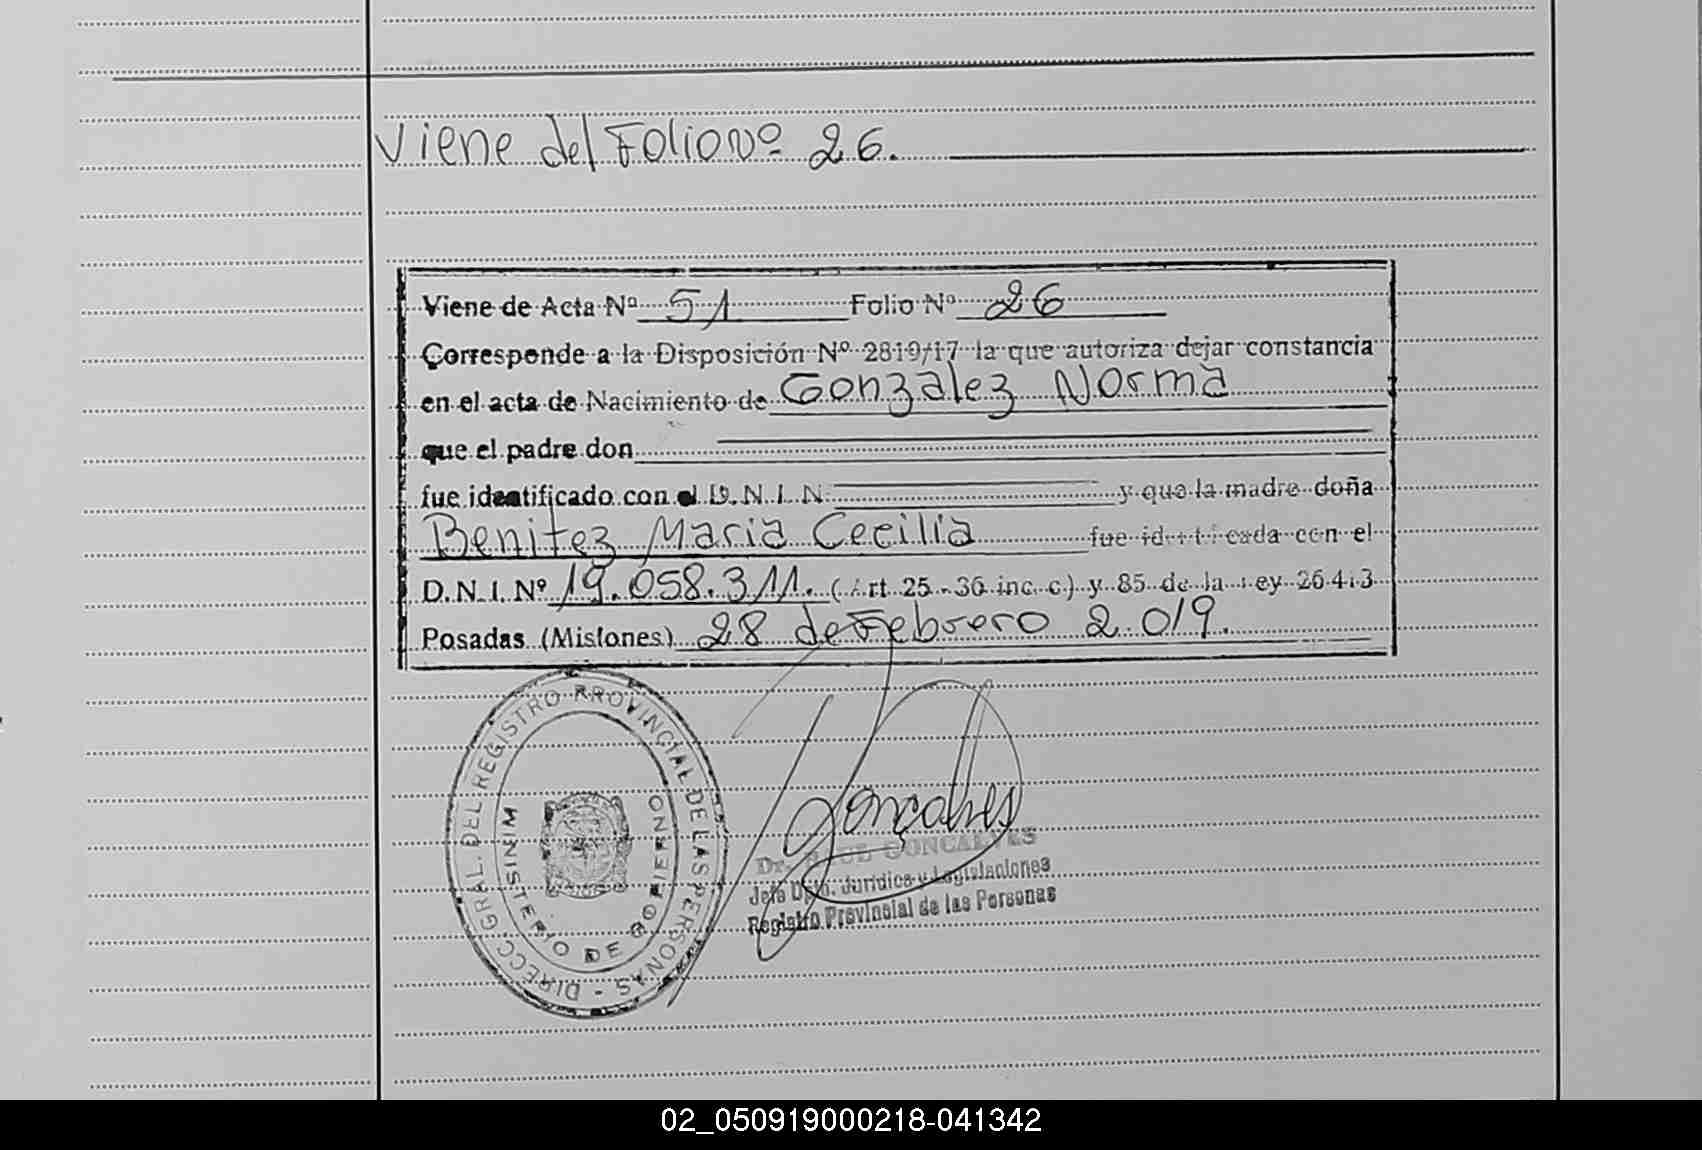 Viene del Folio Nº 26.
Viene de Acta Nº 51 Folio Nº 26
Corresponde a la Disposición Nº 2819/17 la que autoriza dejar constancia
en el acta de Nacimiento de Gonzalez Norma
que el padre don
fue identificado con el D.N.I. N y que la madre doña
Benitez Maria Cecilia fue identificada con el
D.N.I. Nº 19.058.311. (Art. 25 - 36 inc. c) y 85 de la Ley 26413
Posadas (Misiones) 28 de Febrero 2.019.
DIRECC. GRAL. DEL REGISTRO PROVINCIAL DE LAS PERSONAS -
MINISTERIO DE GOBIERNO
Goncalves
Dr. RAUL GONCALVES
Jefe Dpto. Juridico y Legislaciones
Registro Provincial de las Personas
02_050919000218-041342